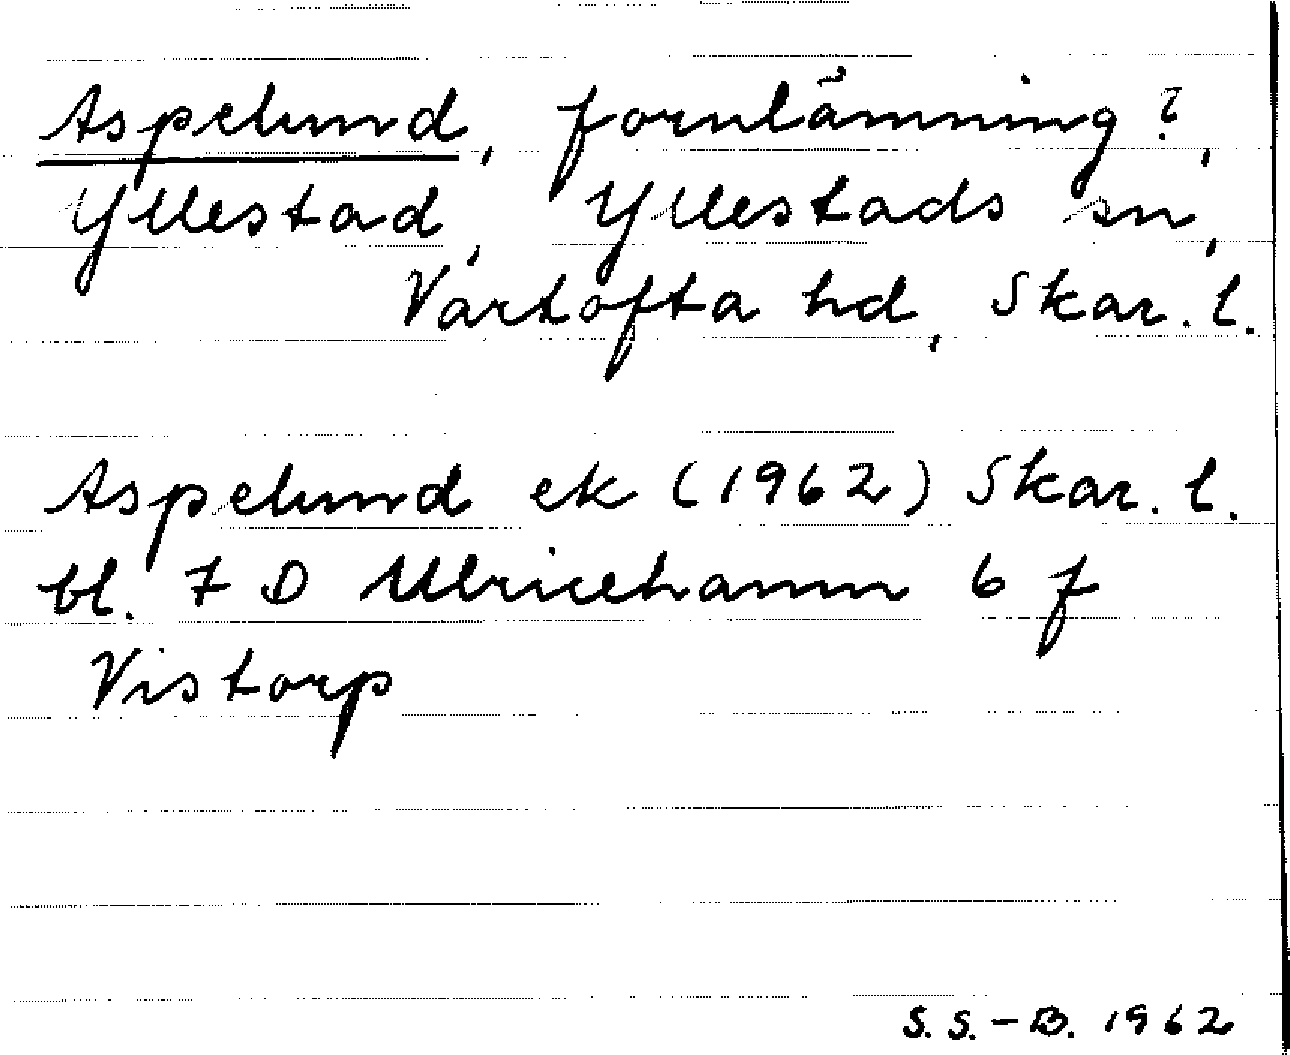 Aspelund, fornlämning?,
Yllestad, Yllestads sn,
Vartofta hd, Skar. l.
Aspelund ek (1962) Skar. l.
bl. 7 D Ulricehamn 6 f
Vistorp
S. S.-B. 1962